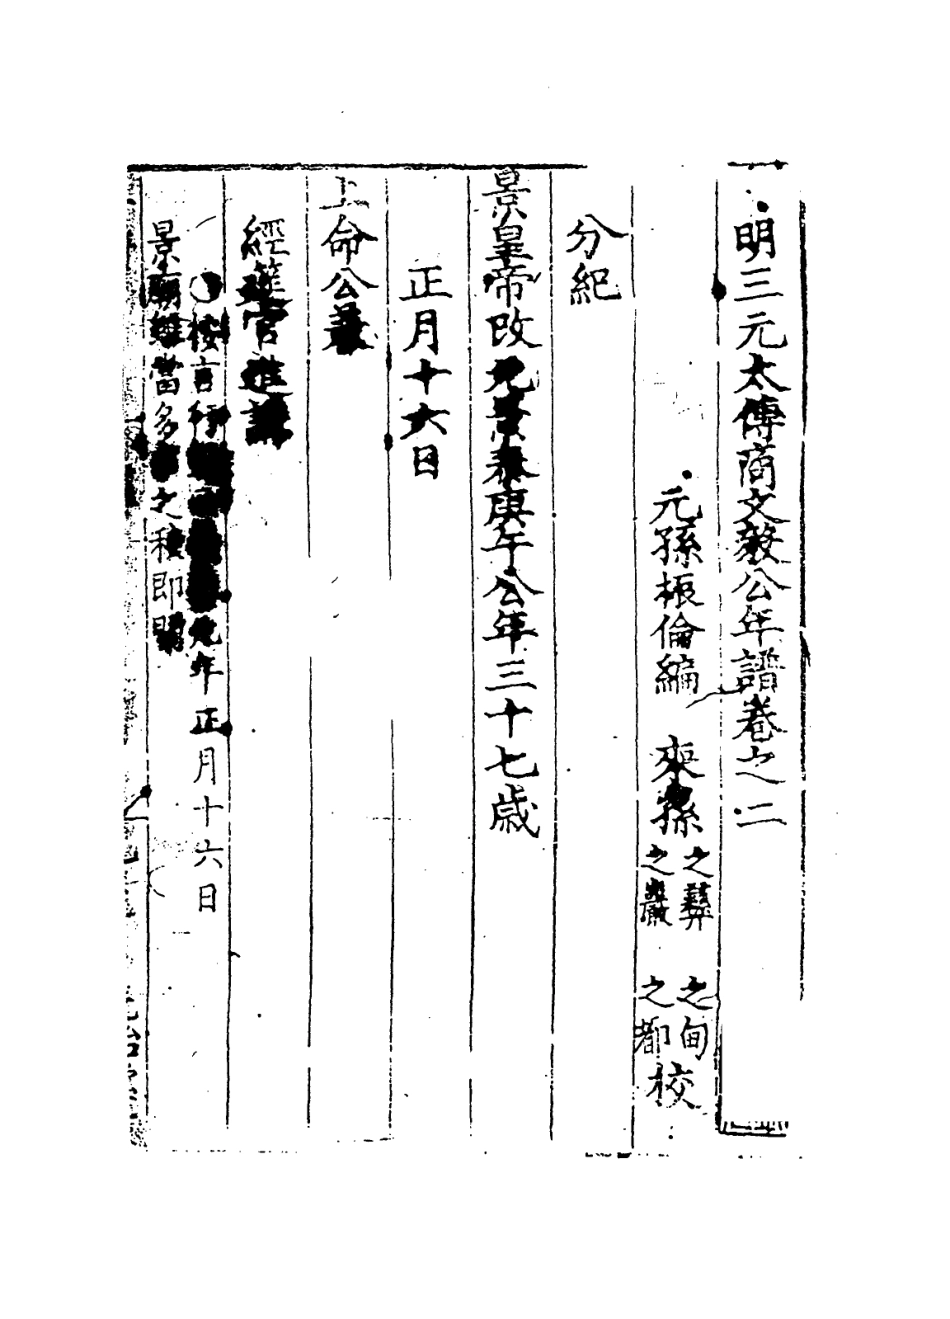 明三元太傅商文毅公年譜卷之二
元孫振倫編　來孫之彝　之甸
之巖　之都校
分紀
景皇帝改元景泰庚午公年三十七歲
正月十六日
上命公兼
經筵官進講
按言行　元年正月十六日
景廟雖當多事之秋即開